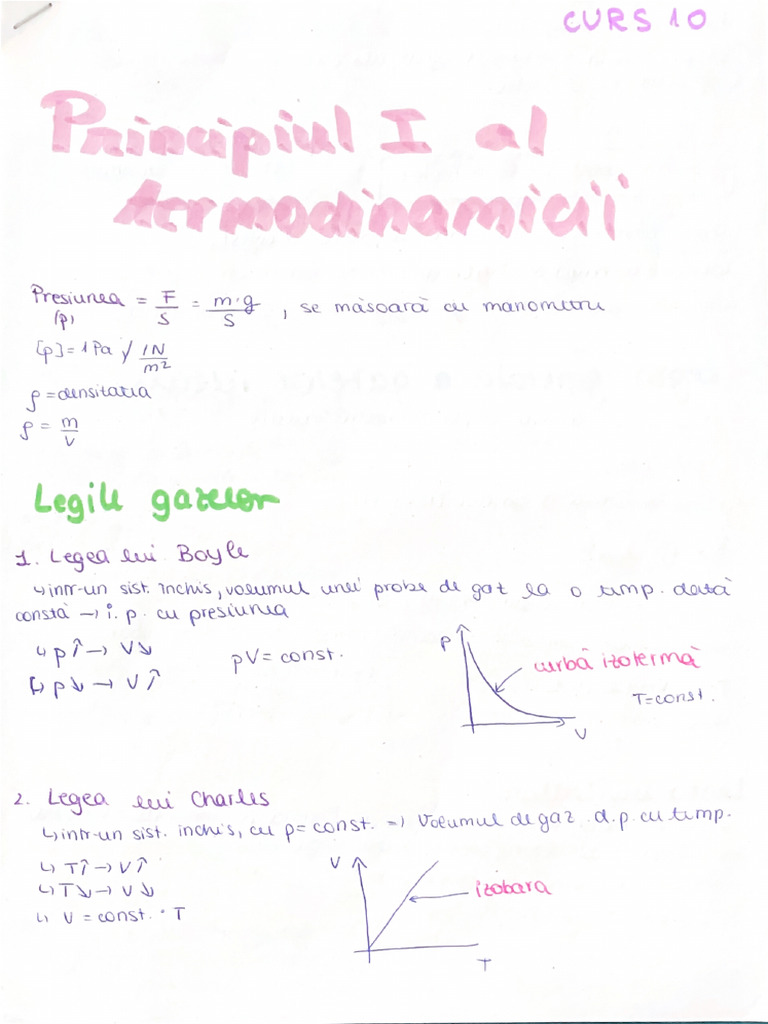 CURS 10
Principiul I al
termodinamicii
Presiunea = F/S = m·g/S , se măsoară cu manometru
(p)
[p] = 1Pa / 1N/m²
ρ = densitatea
ρ = m/V
Legile gazelor
1. Legea lui Boyle
↳ intr-un sist. închis, volumul unei probe de gaz la o temp. dată
constă → i. p. cu presiunea
↳ p↑ → V↓
↳ p↓ → V↑
pV = const.
P
curbă izotermă
T=const.
V
2. Legea lui Charles
↳ intr-un sist. inchis, cu p= const. => Volumul de gaz d.p. cu temp.
↳ T↑ → V↑
↳ T↓ → V↓
↳ V = const. · T
V
izobara
T